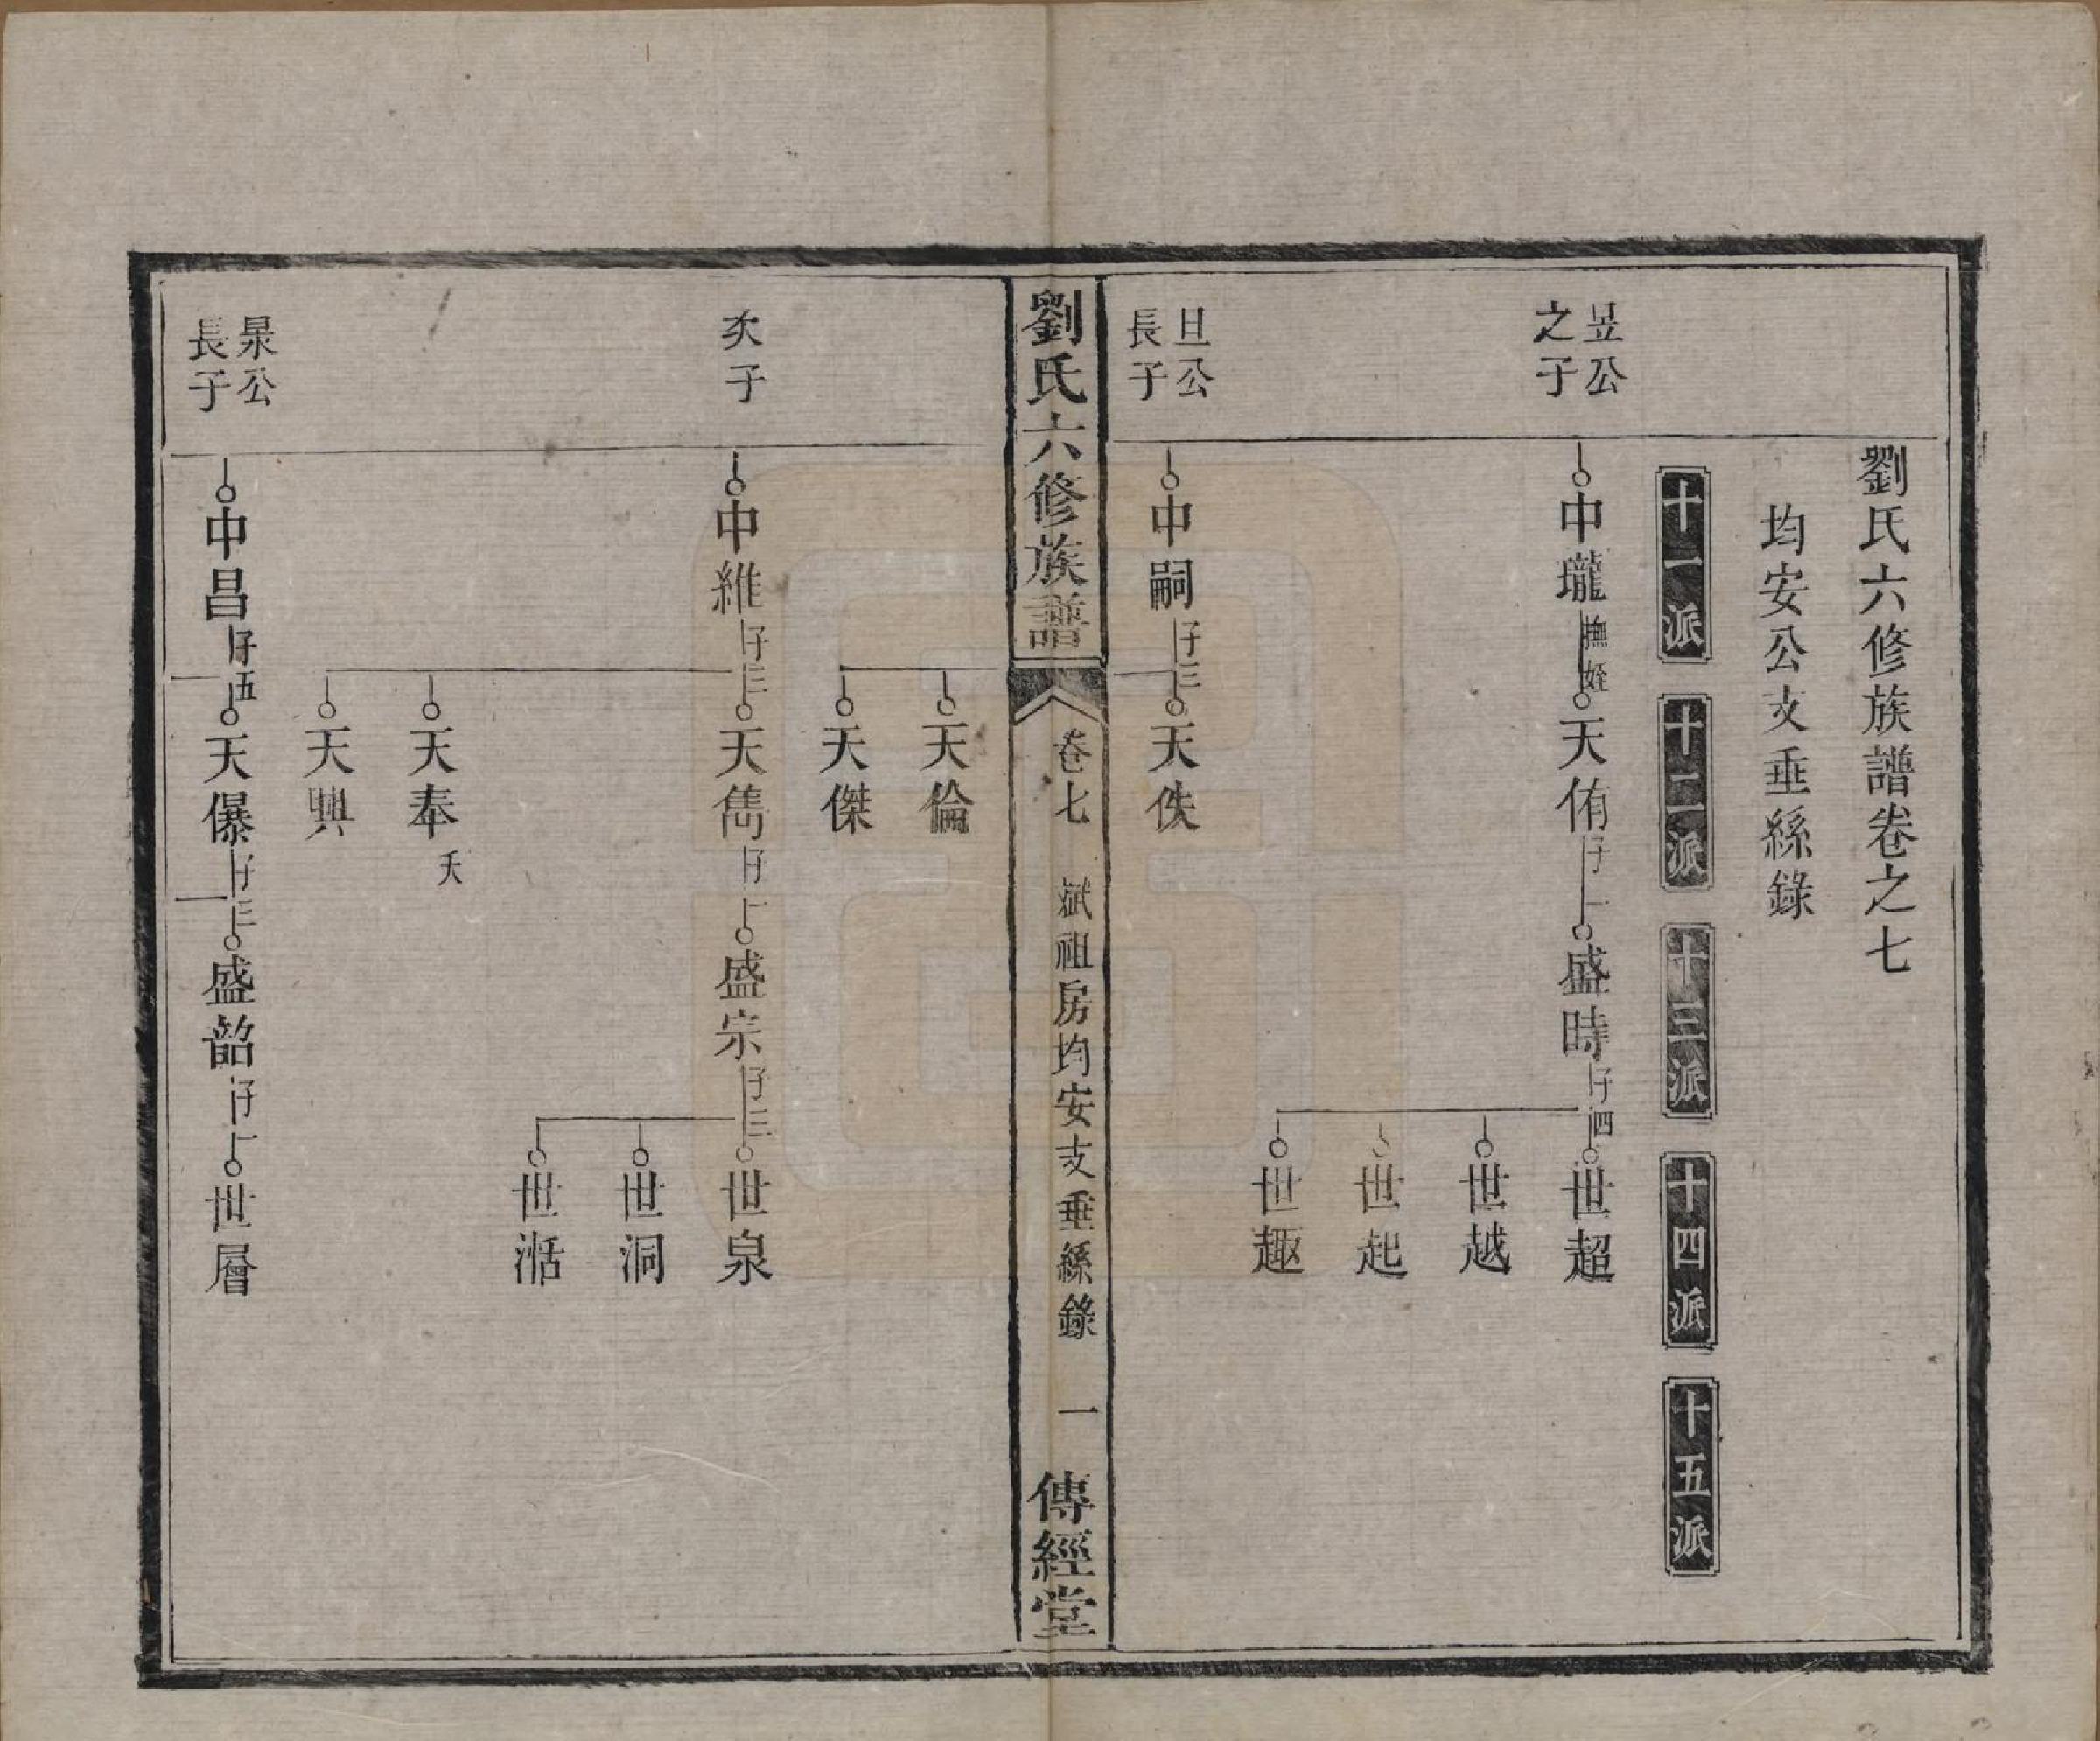 劉氏六修族譜卷之七
均安公支垂絲錄
十一派
十二派
十三派
十四派
十五派
昱公
之子
中瓏
撫姪
天侑
仔一
盛時
仔四
世超
世越
世起
世趣
旦公
長子
中嗣
仔三
天佚
劉氏六修族譜
卷七
斌祖房均安支垂絲錄
一
傳經堂
天倫
天傑
次子
中維
仔三
天雋
仔一
盛宗
仔三
世泉
世洞
世湉
天奉
夭
天興
杲公
長子
中昌
仔五
天㒔
仔三
盛韶
仔一
世層